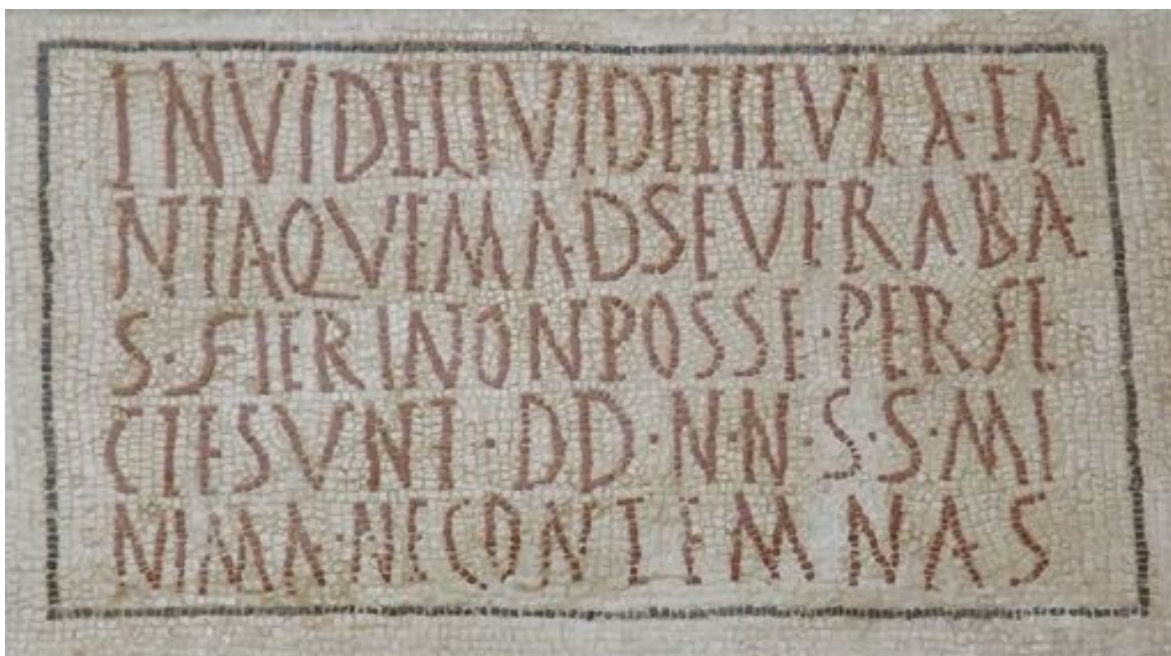 INVIDELIVIDETITVLA·TA
NTAQVEMADSEVERABA
S·FIERINONPOSSE·PERFE
CTESVNT·DD·N·N·S·S·MI
NIMA·NECONTEMNAS